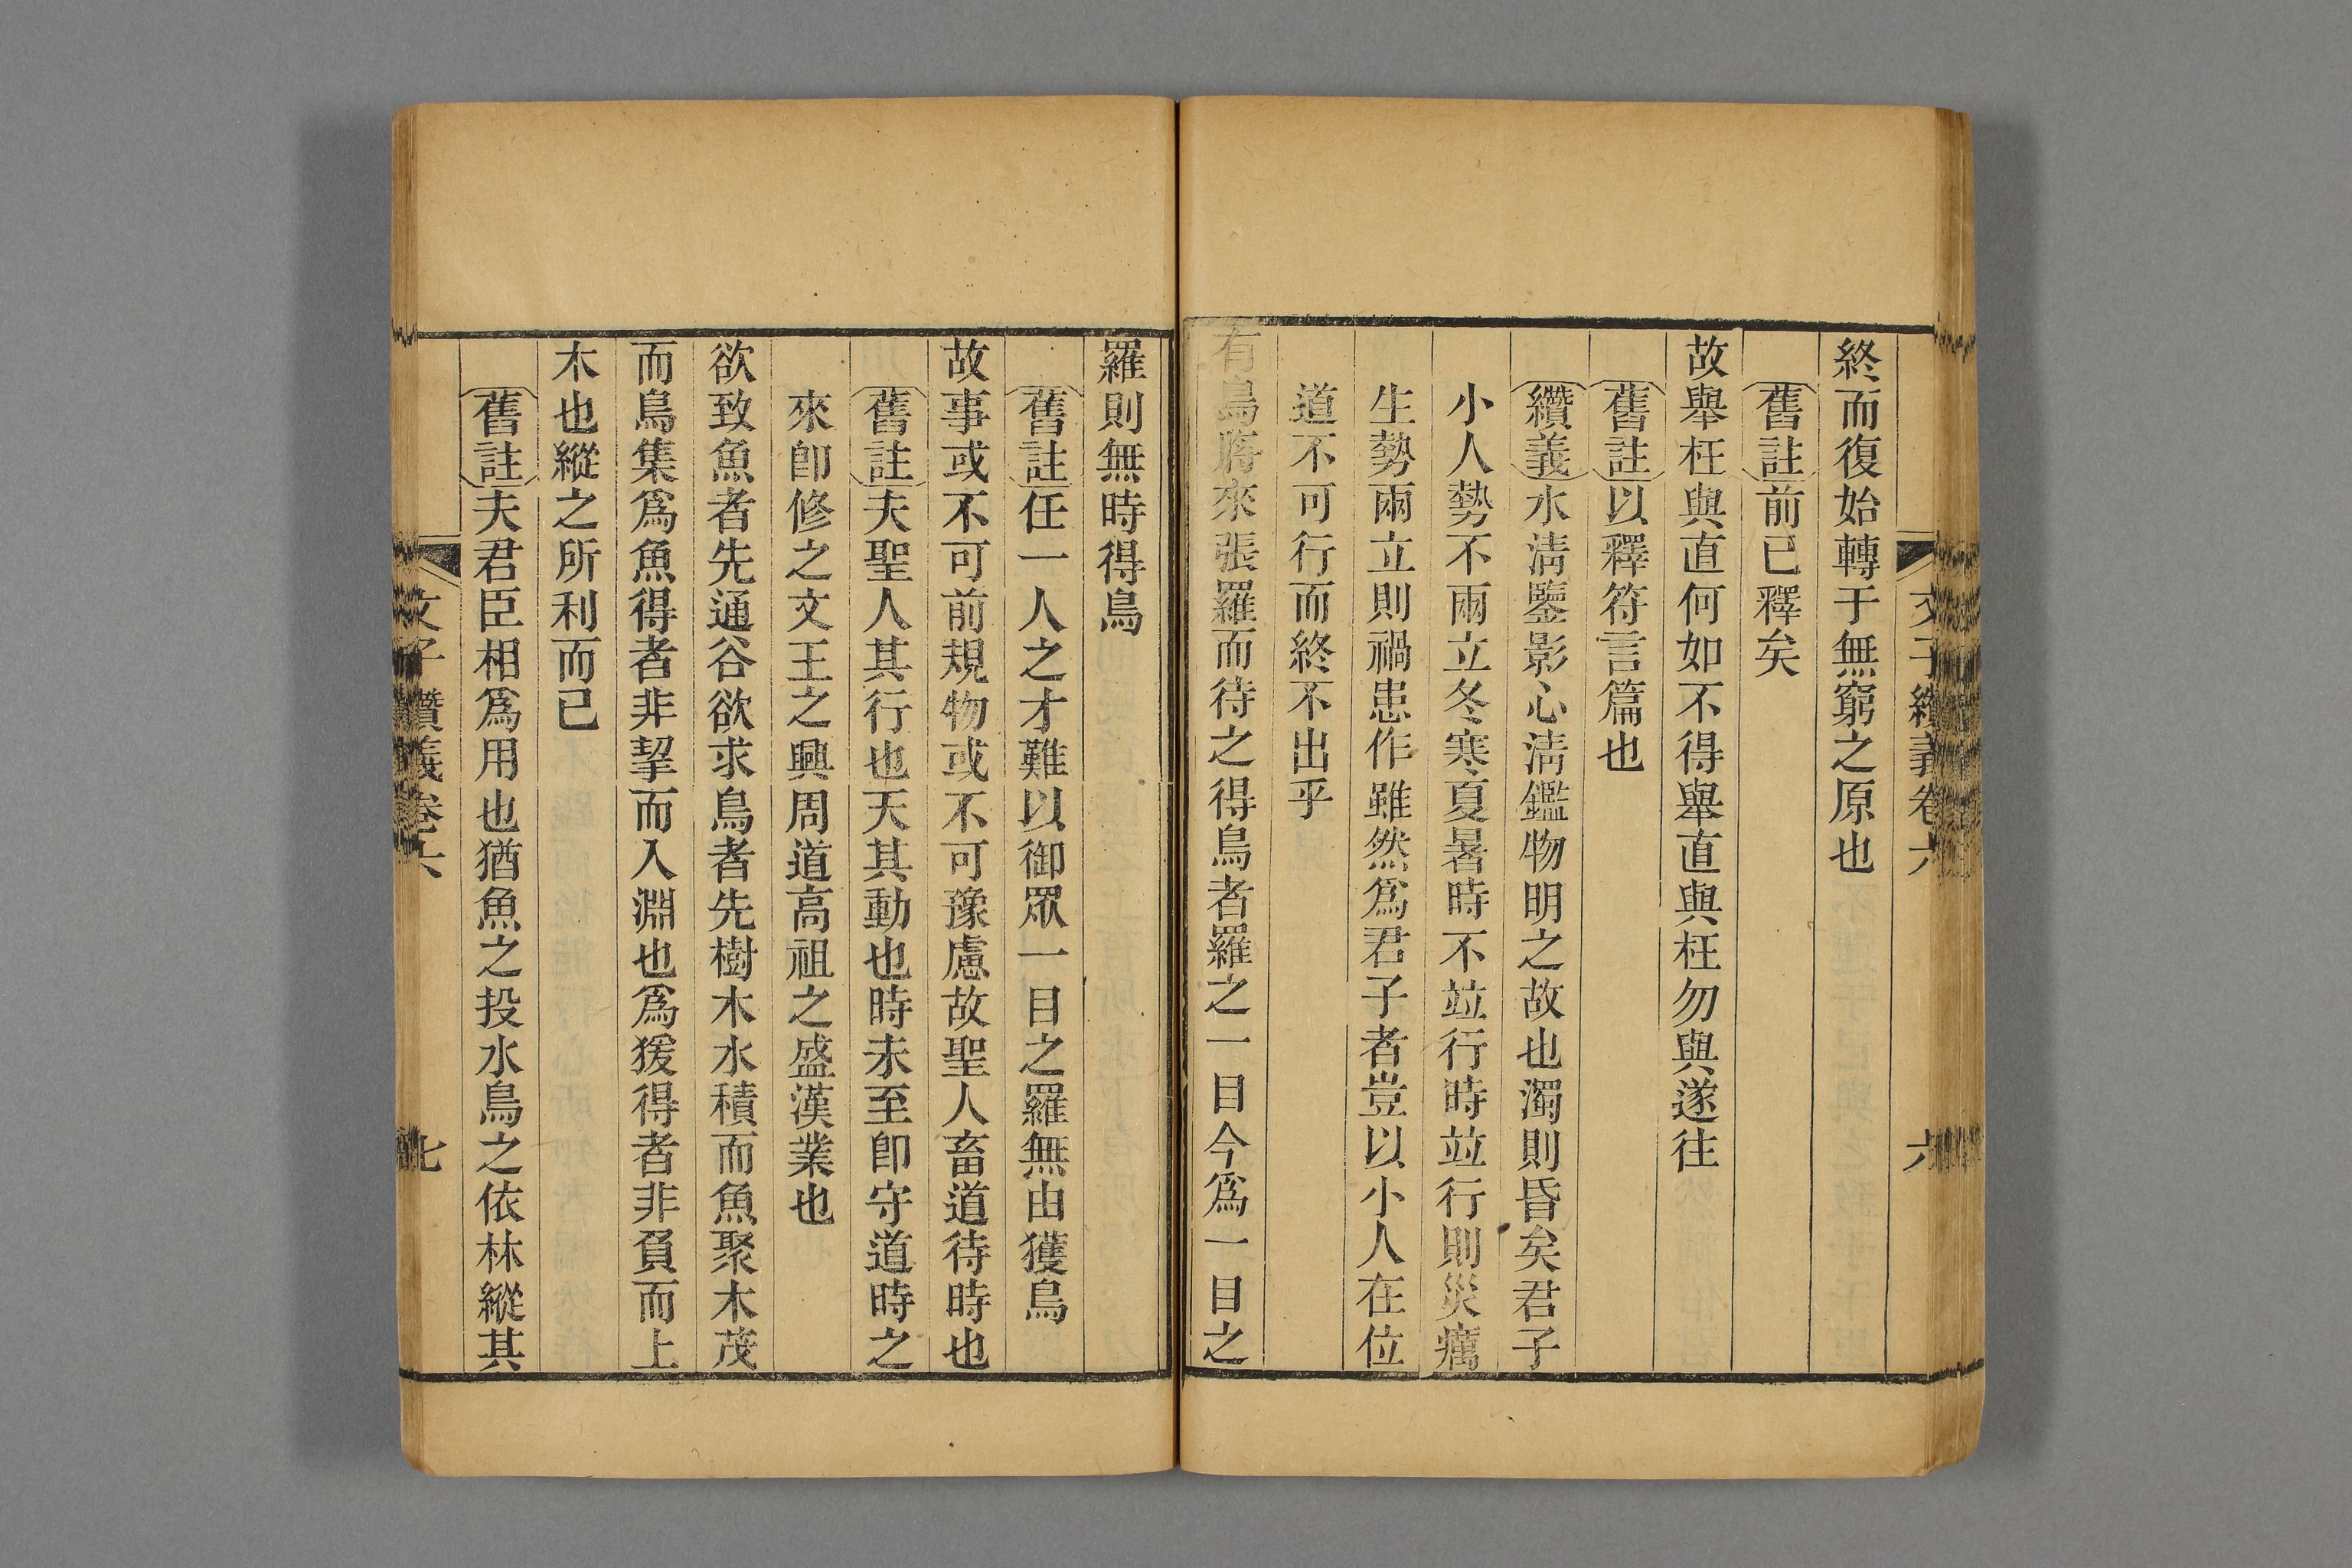 文子纘義卷六
六
終而復始轉于無窮之原也
舊註前已釋矣
故舉枉與直何如不得舉直與枉勿與遂往
舊註以釋符言篇也
纘義水淸鑒影心淸鑑物明之故也濁則昏矣君子
小人勢不兩立冬寒夏暑時不竝行時竝行則災癘
生勢兩立則禍患作雖然爲君子者豈以小人在位
道不可行而終不出乎
有鳥將來張羅而待之得鳥者羅之一目今爲一目之
羅則無時得鳥
舊註任一人之才難以御眾一目之羅無由獲鳥
故事或不可前規物或不可豫慮故聖人畜道待時也
舊註夫聖人其行也天其動也時未至卽守道時之
來卽修之文王之興周道高祖之盛漢業也
欲致魚者先通谷欲求鳥者先樹木水積而魚聚木茂
而鳥集爲魚得者非挈而入淵也爲猨得者非負而上
木也縱之所利而已
舊註夫君臣相爲用也猶魚之投水鳥之依林縱其
文子纘義卷六
七